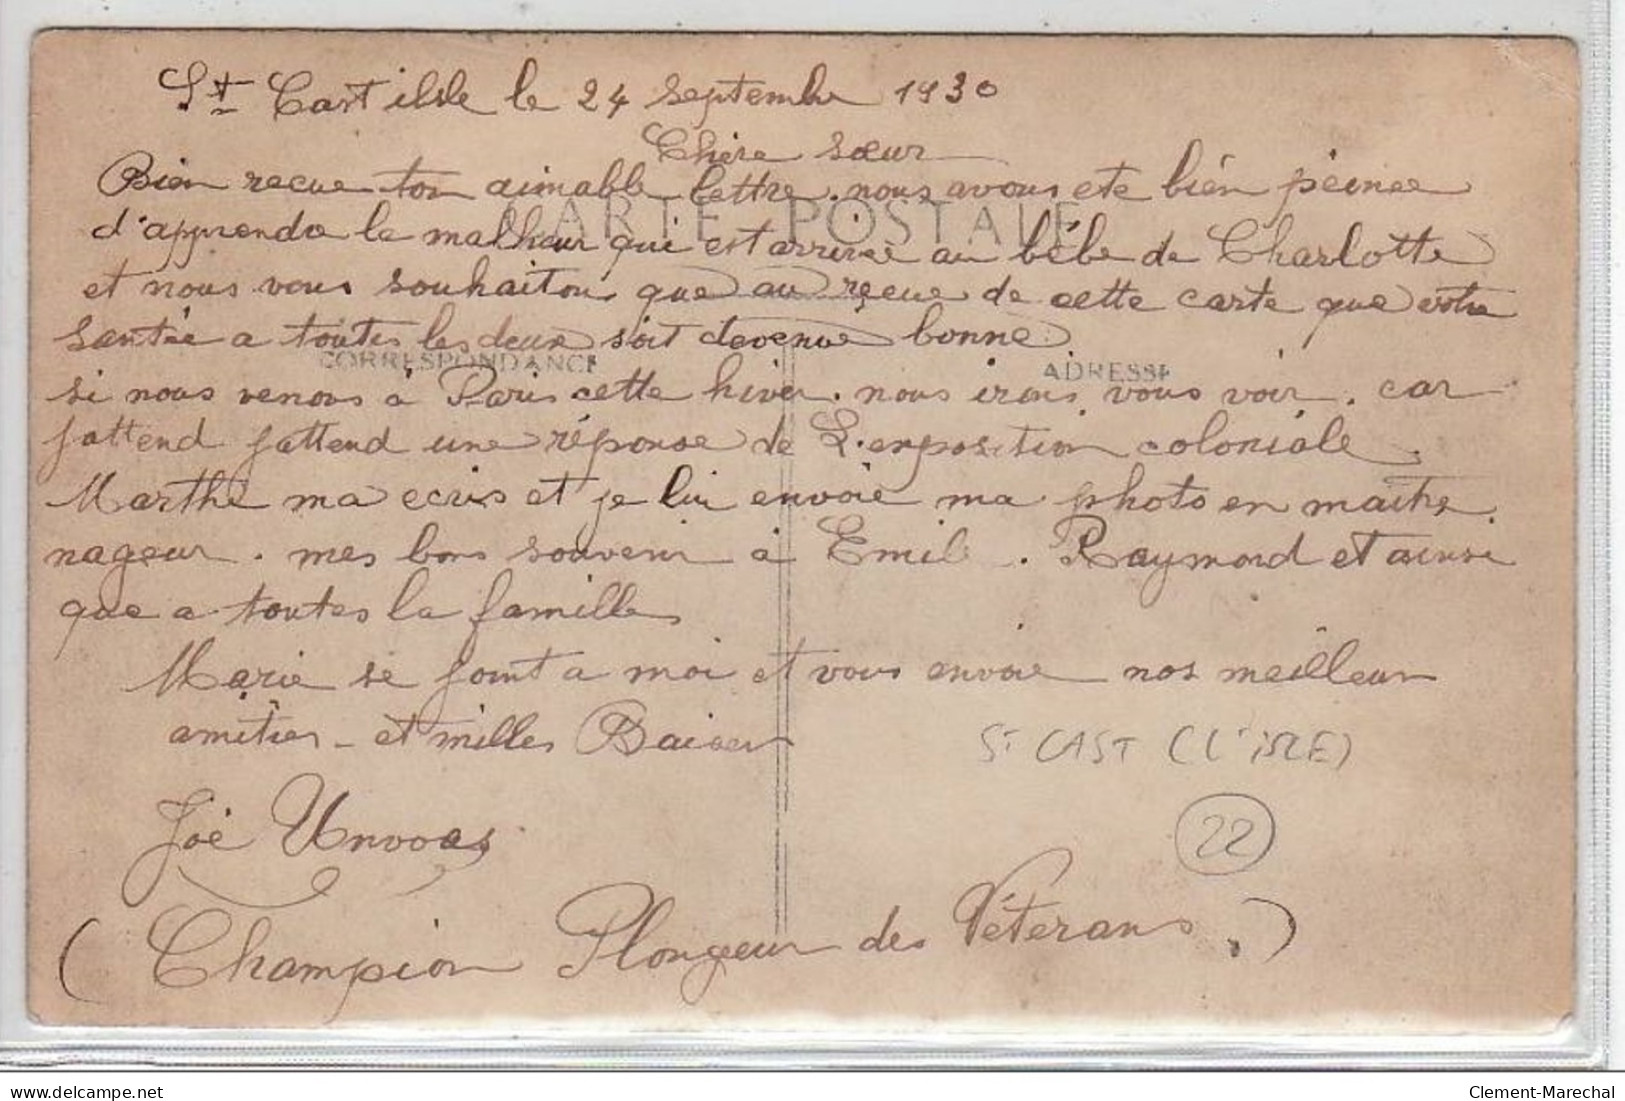 St Cast ilsle le 24 septembre 1930
Chère sœur
Bien recue ton aimable lettre. nous avons ete bién péinee
CARTE POSTALE
d'apprendre le malheur qui est arrivée au bébe de Charlotte
et nous vous souhaitons que au reçue de cette carte que votre
santée a toutes les deux soit devenue bonne
CORRESPONDANCE ADRESSE
si nous venons à Paris cette hiver. nous irons vous voir. car
jattend jattend une réponse de L'exposition coloniale.
Marthe ma ecris et je lui envoie ma photo en maitre
nageur. mes bons souvenir à Emile. Raymond et ainsi
que a toutes la famille
Marie se joint a moi et vous envoie nos meilleur
amitiés - et milles Baisers
St CAST (L'ISLE)
Joé Unvoas
22
(Champion Plongeur des Véterans.)
delcampe.net
Clement-Marechal